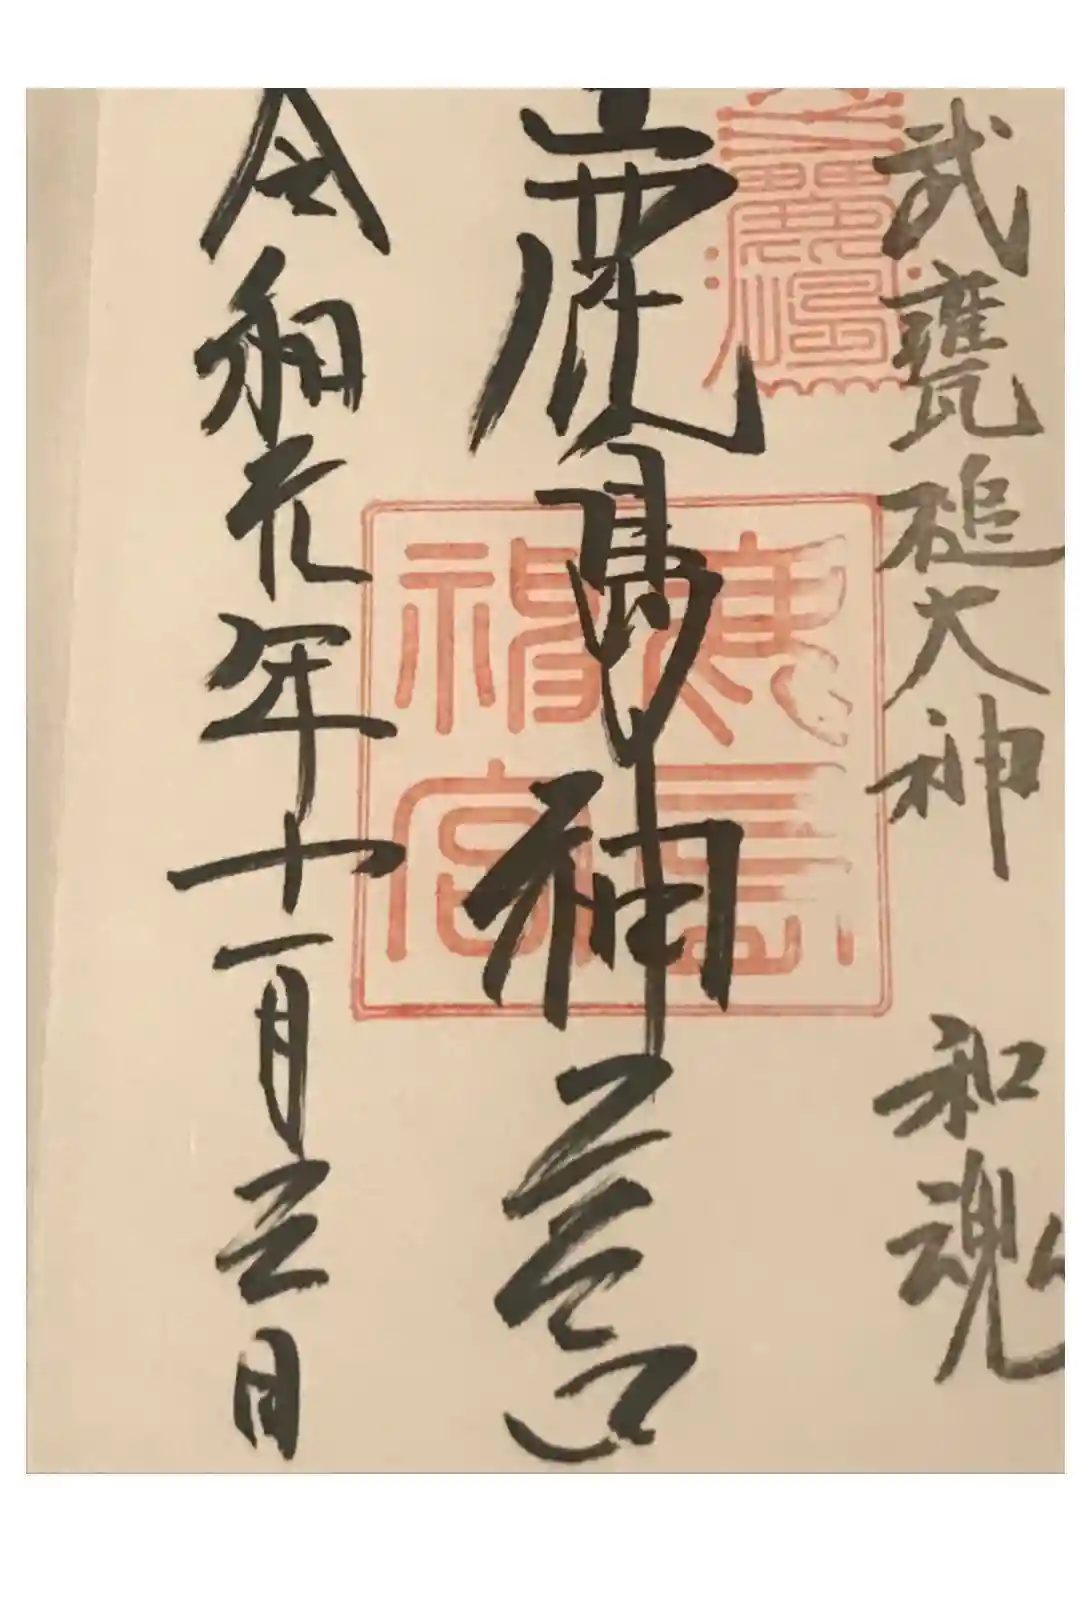 武甕槌大神 和魂
鹿島神宮
鹿島神宮
令和元年十一月三日